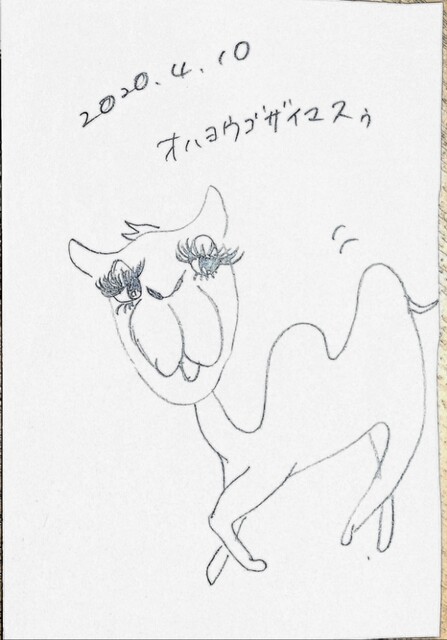 2020.4.10
オハヨウゴザイマスゥ